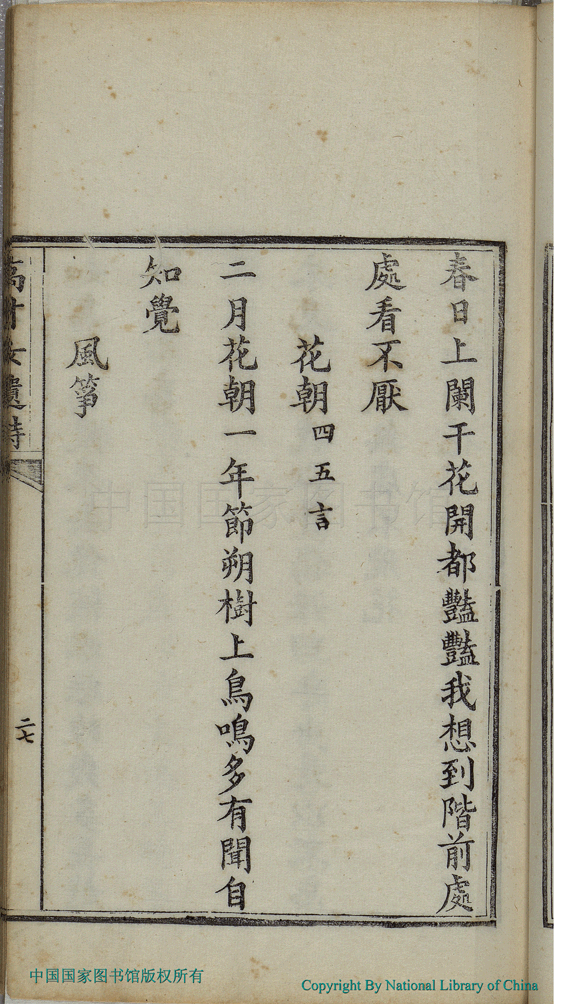 春日上闌干花開都豔豔我想到階前處
處看不厭
花朝四五言
二月花朝一年節朔樹上鳥鳴多有聞自
知覺
風箏
高才女遺詩
二七
中国国家图书馆
中国国家图书馆版权所有
Copyright By National Library of China